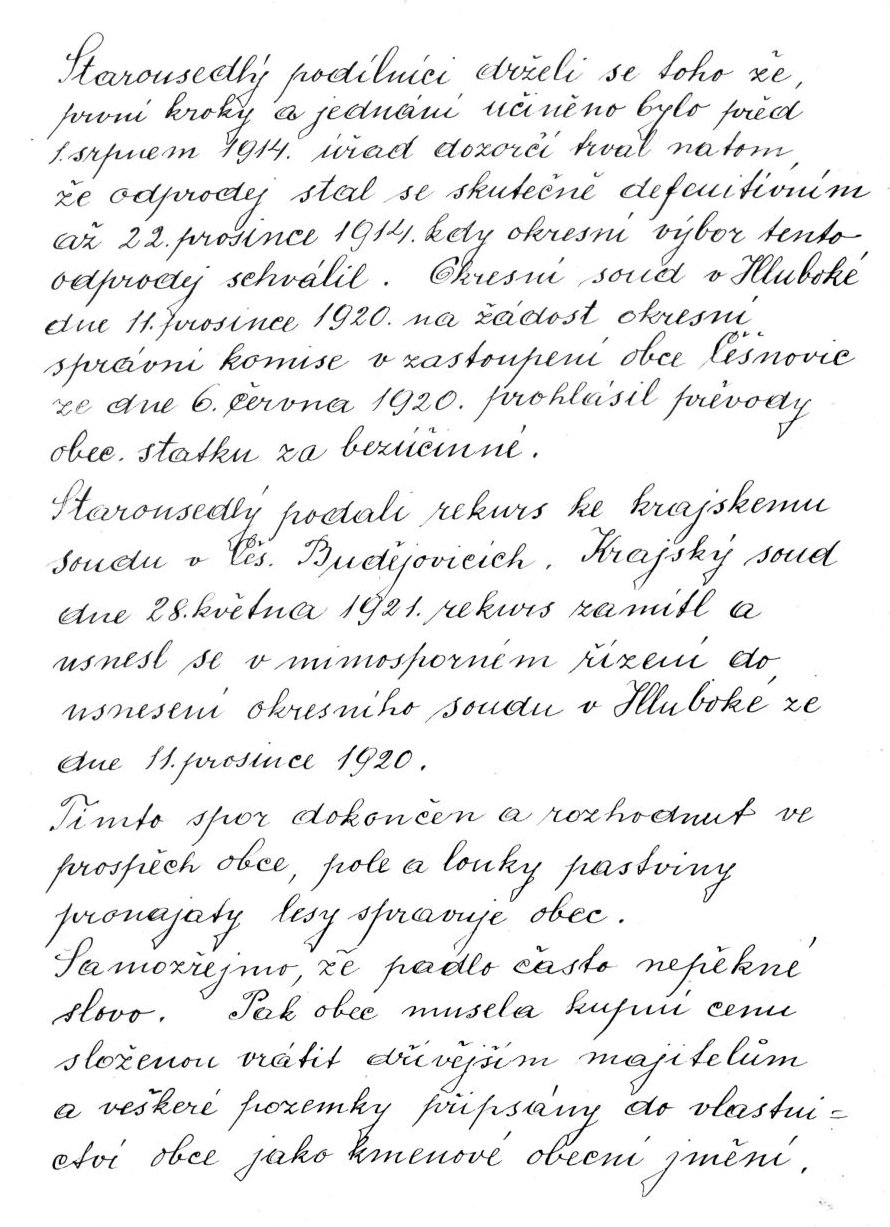 Starousedlý podílníci drželi se toho že,
první kroky a jednání učiněno bylo před
1. srpnem 1914. úřad dozorčí trval na tom,
že odprodej stal se skutečně defenitívním
až 22. prosince 1914. kdy okresní výbor tento
odprodej schválil. Okresní soud v Hluboké
dne 11. prosince 1920. na žádost okresní
správní komise v zastoupení obce Češnovic
ze dne 6. června 1920. prohlásil převody
obec. statku za bezúčinné.
Starousedlý podali rekurs ke krajskemu
soudu v Čes. Budějovicích. Krajský soud
dne 28. května 1921. rekurs zamítl a
usnesl se v mimosporném řízení do
usnesení okresního soudu v Hluboké ze
dne 11. prosince 1920.
Tímto spor dokončen a rozhodnut ve
prospěch obce, pole a louky pastviny
pronajaty lesy spravuje obec.
Samozřejmo, že padlo často nepěkné
slovo. Pak obec musela kupní cenu
složenou vrátit dřívějším majitelům
a veškeré pozemky připsány do vlastni=
ctví obce jako kmenové obecní jmění.